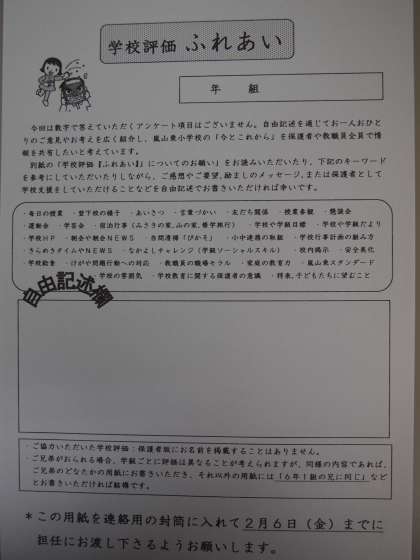 学校評価 ふれあい
年　　組
今回は数字で答えていただくアンケート項目はございません。自由記述を通じてお一人おひと
りのご意見やお考えを広く紹介し、嵐山東小学校の「今とこれから」を保護者や教職員全員で情
報を共有したいと考えています。
別紙の「学校評価『ふれあい』についてのお願い」をお読みいただいたり、下記のキーワード
を参考にしていただいたりしながら、ご感想やご要望、励ましのメッセージ、または保護者として
学校支援をしていただけることなどを自由記述でお書きいただければ幸いです。
・毎日の授業　・登下校の様子　・あいさつ　・言葉づかい　・友だち関係　・授業参観　・懇談会
・運動会　・学芸会　・宿泊行事（みさきの家、山の家、修学旅行）　・学校や学級目標　・学校や学級だより
・学校HP　・朝会や朝会NEWS　・自問清掃「ぴかそ」　・小中連携の取組　・学校行事計画の組み方
・きらめきタイムやNEWS　・なかよしチャレンジ（学級ソーシャルスキル）　・校内掲示　・安全美化
・学校給食　・けがや問題行動への対応　・教職員の職場モラル　・家庭の教育力　・嵐山東スタンダード
・学校の雰囲気　・学校教育に関する保護者の意識　・将来、子どもたちに望むこと
自由記述欄
・ご協力いただいた学校評価：保護者版にお名前を掲載することはありません。
・ご兄弟がおられる場合、学級ごとに評価は異なることが考えられますが、同様の内容であれば、
ご兄弟のどなたかの用紙にお書きいただき、それ以外の用紙には「6年1組の兄に同じ」など
とお書きいただければ結構です。
＊この用紙を連絡用の封筒に入れて2月6日（金）までに
担任にお渡し下さるようお願いします。